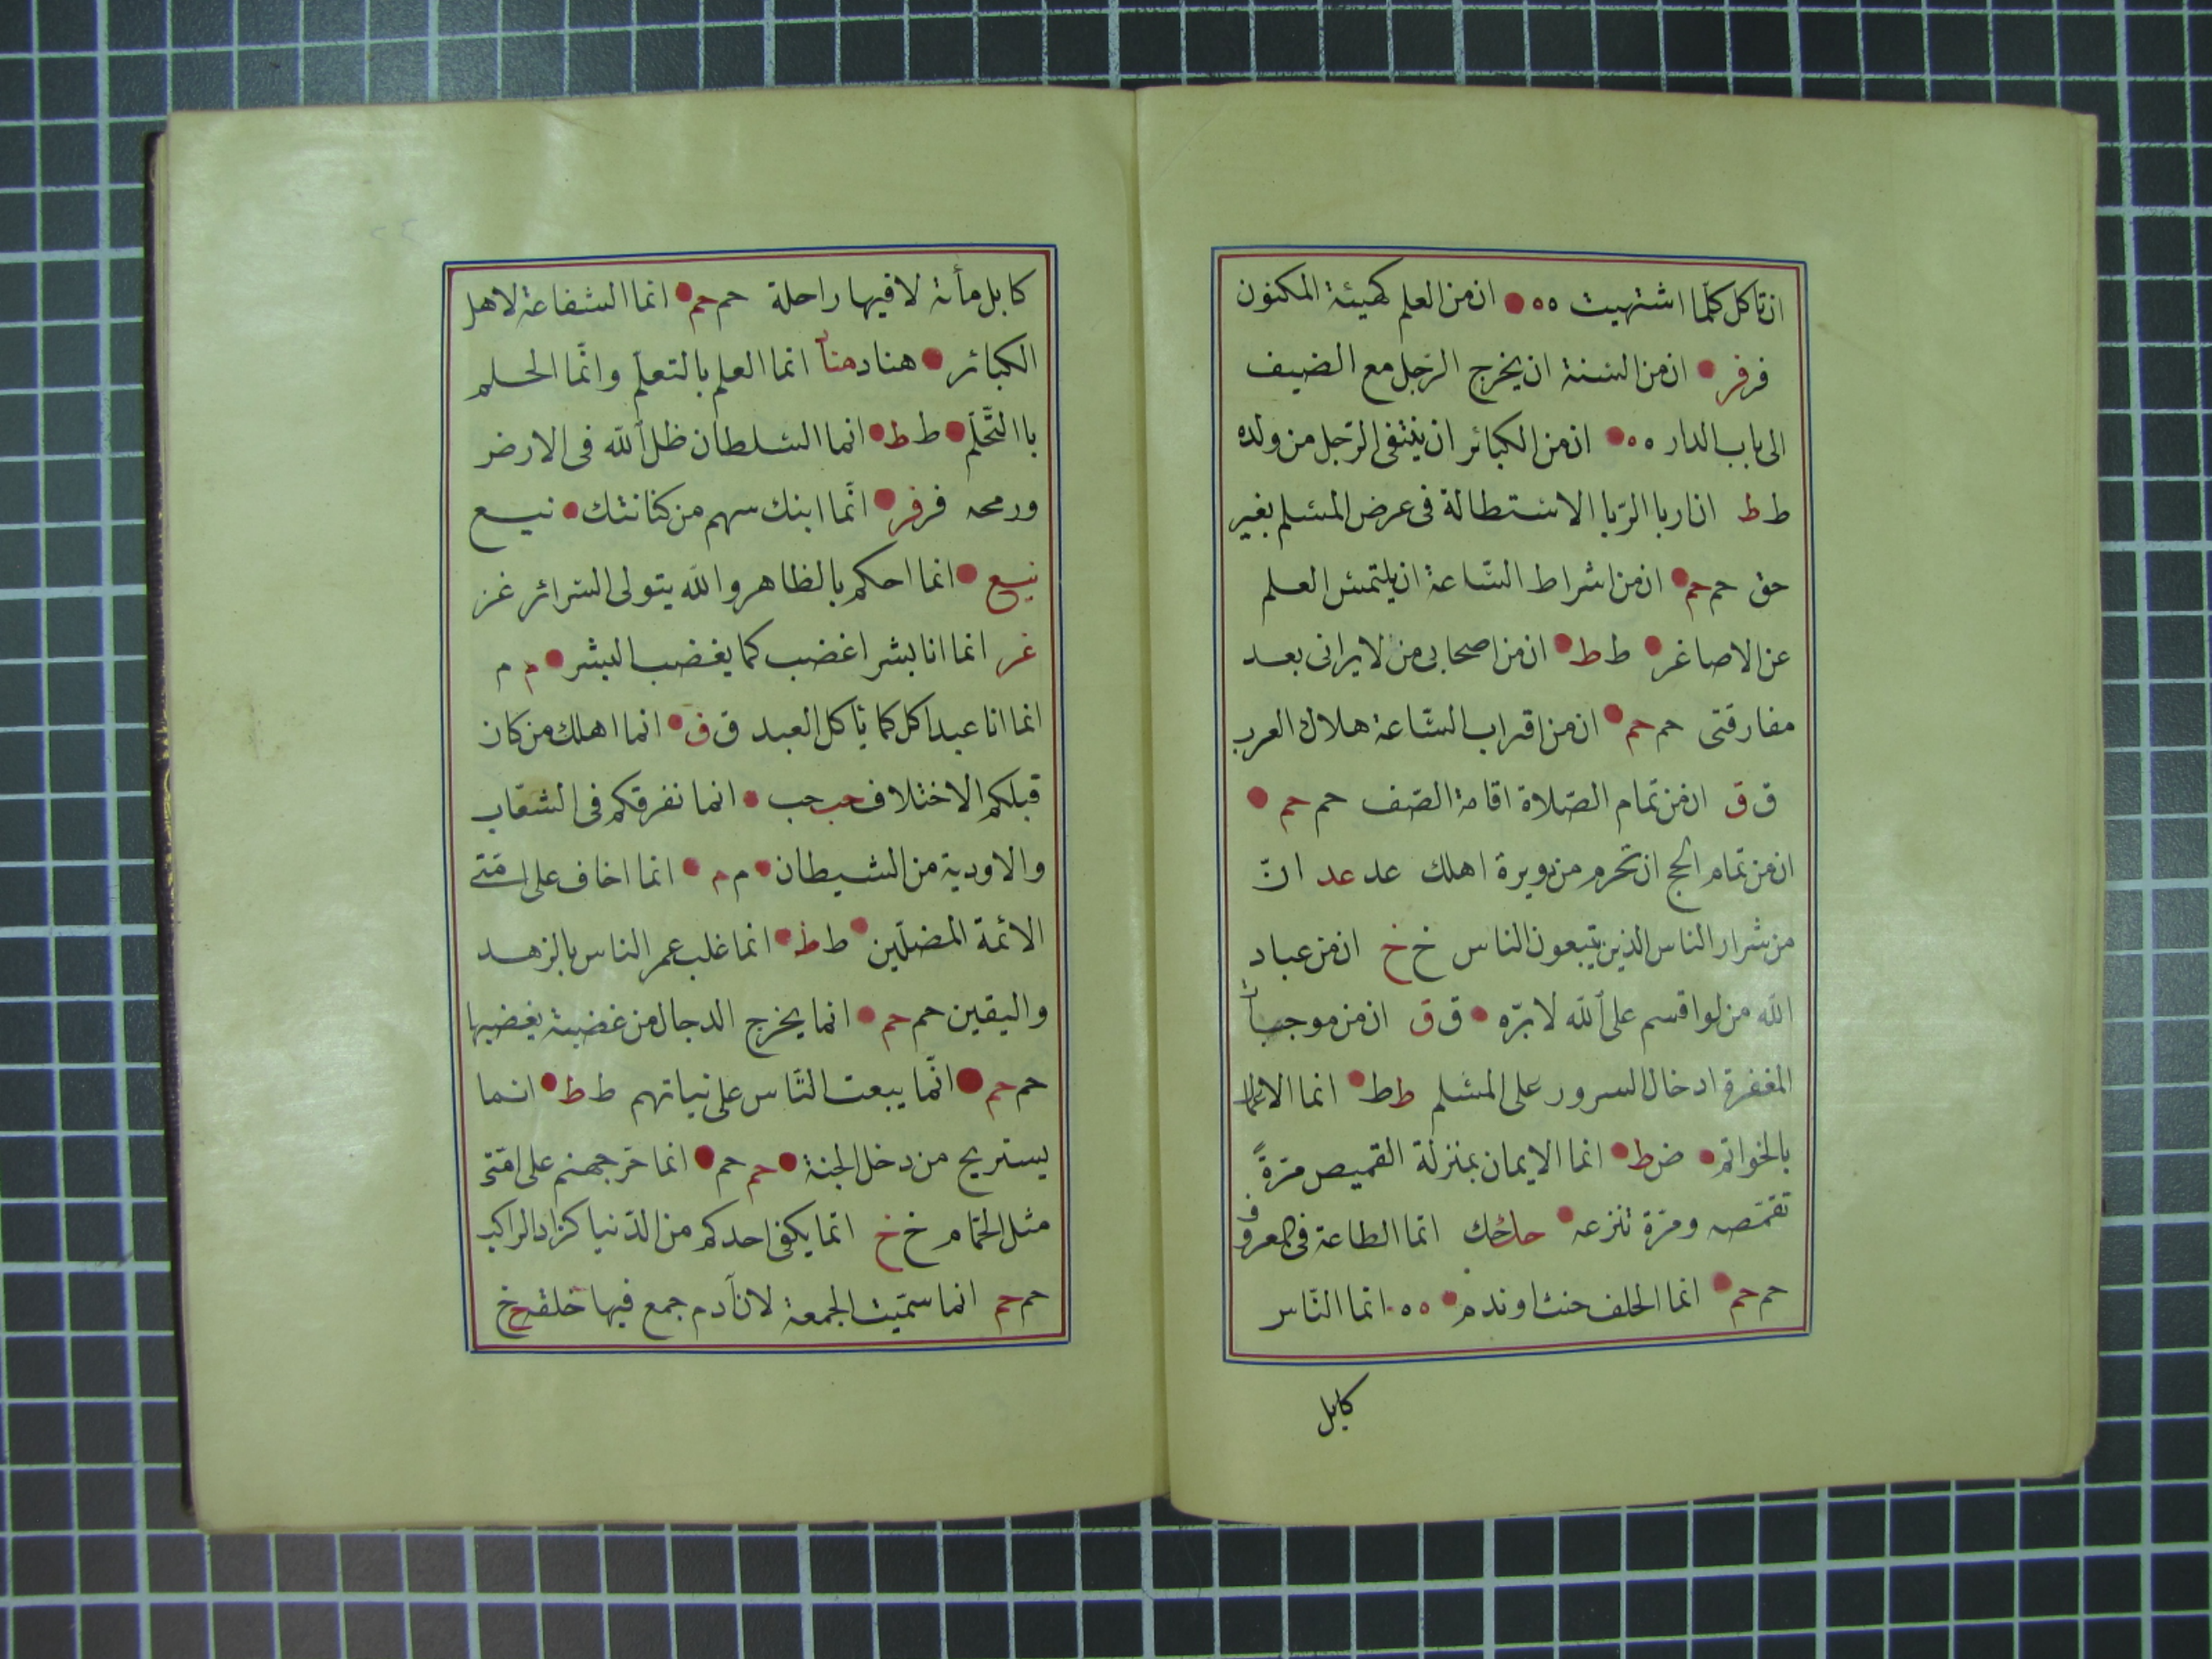 ان تاكل كلّما اشتهيت ه ه ان من العلم كهيئة المكنون
فر فر ان من السنة ان يخرج الرّجل مع الضيف
الى باب الدار ه ه ان من الكبائر ان ينتفى الرّجل من ولده
ط ط ان اربا الرّبا الاستطالة فى عرض المسلم بغير
حق حم حم ان من اشراط السّاعة ان يلتمس العلم
عن الاصاغر ط ط ان من اصحابى من لا يرانى بعد
مفارقتى حم حم ان من اقتراب السّاعة هلاك العرب
ق ق ان من تمام الصّلاة اقامة الصّف حم حم
ان من تمام الحج ان تحرم من دويرة اهلك عد عد انّ
من شرار الناس الذين يتبعون الناس خ خ ان من عباد
الله من لو اقسم على الله لابرّه ق ق ان من موجبات
المغفرة ادخال السرور على المسلم ط ط انما الاعمال
بالخواتم ض ط انما الايمان بمنزلة القميص مرّةً
تقمّصه ومرّة تنزعه انّما الطاعة فى المعروف
حم حم انما الحلف حنث او ندم ه ه انّما النّاس
كابل
كابل مأة لا فيها راحلة حم حم انما الشفاعة لاهل
الكبائر هناد هنا انما العلم بالتعلّم وانّما الحلم
باالتّحلّم ط ط انما السلطان ظل الله فى الارض
ورمحه فر فر انّما ابنك سهم من كنانتك نيع
نيع انما احكم بالظاهر والله يتولى السّرائر غر
غر انما انا بشر اغضب كما يغضب البشر م م
انما انا عبد اكل كما ياكل العبد ق ق انما اهلك من كان
قبلكم الاختلاف حب حب انما نفرقكم فى الشعاب
والاودية من الشيطان م م انما اخاف على امّتى
الائمة المضلّين ط ط انما غلب عمر الناس بالزهد
واليقين حم حم انما يخرج الدجال من غضبة يغضبها
حم حم انّما يبعث النّاس على نياتهم ط ط انما
يستريح من دخل الجنة حم حم انما حرّ جهنم على امّتى
مثل الحمّام خ خ انّما يكفى احدكم من الدّنيا كزاد الراكب
حم حم انما سمّيت الجمعة لان آدم جمع فيها خلقه خ خ